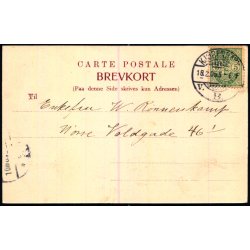 CARTE POSTALE
BREVKORT
(Paa denne Side skrives kun Adressen)
Til
Enkefru W. Rønnenkamp
Nørre Voldgade 46¹